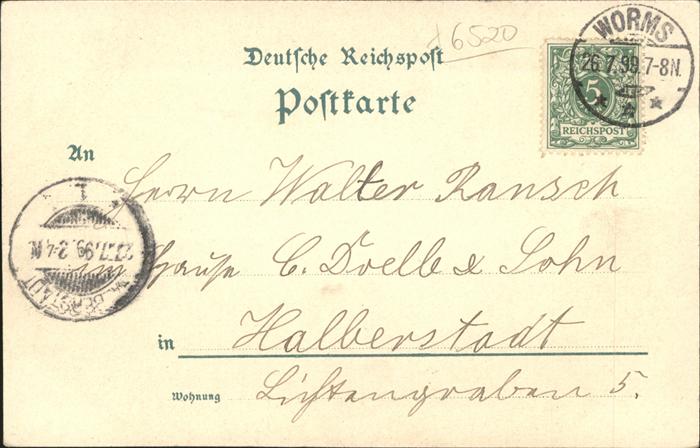 6520
Deutsche Reichspost
Postkarte
WORMS
26.7.99.7-8N.
5
REICHSPOST
An
Herrn Walter Ransch
im Hause C. Doelle & Sohn
in Halberstadt
Wohnung Lichtengraben 5.
HALBERSTADT
1
27.7.99. 3-4N.